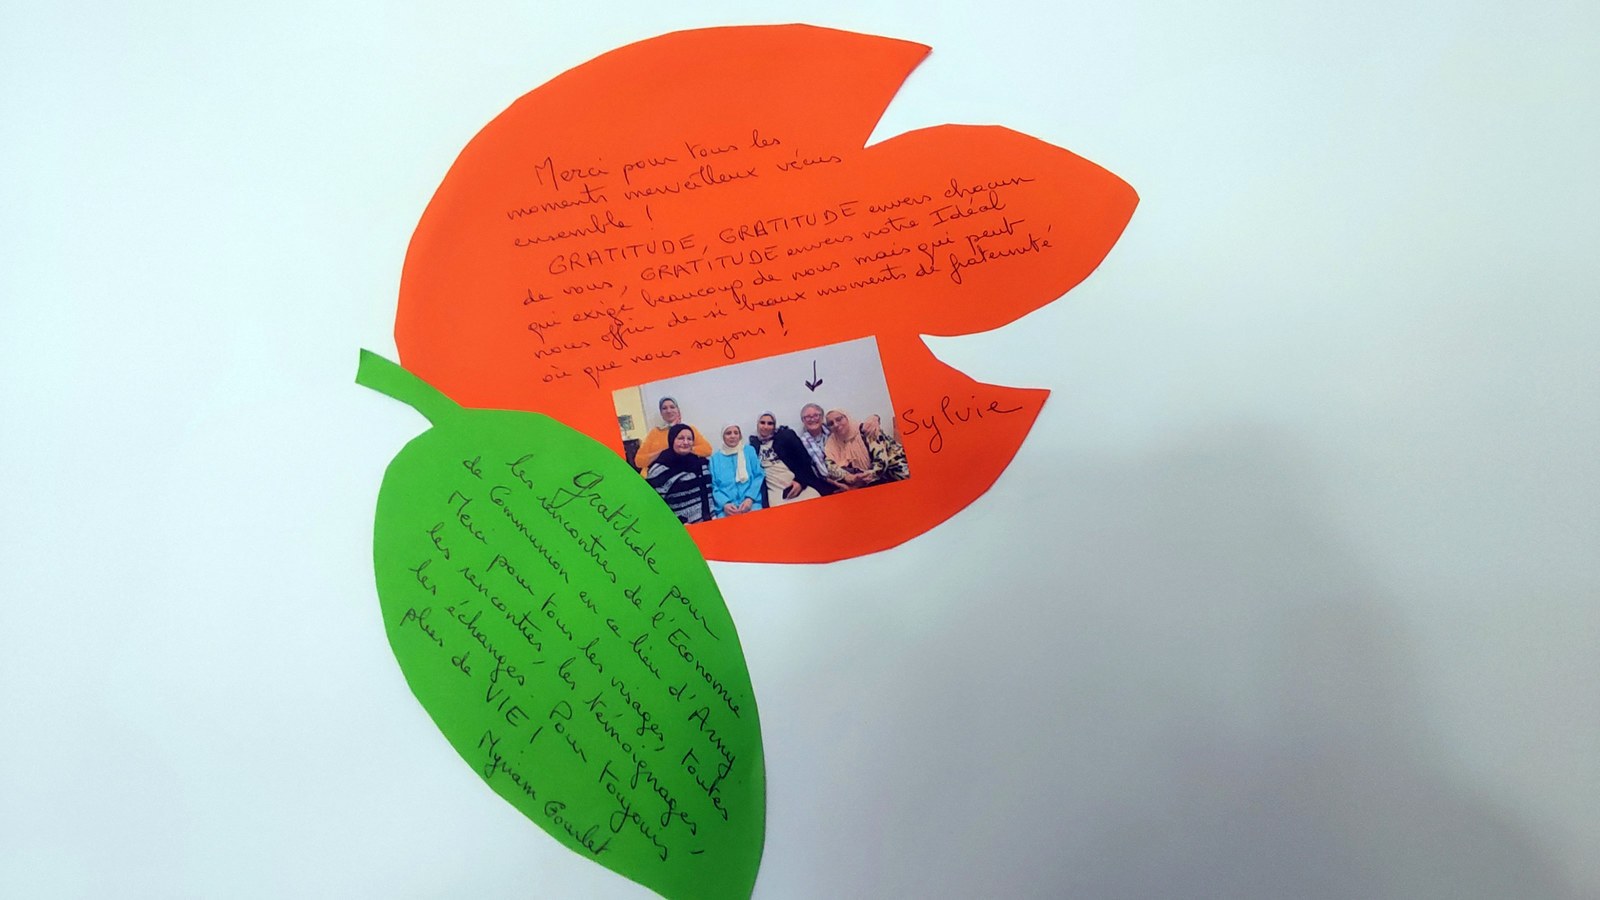 Merci pour tous les
moments merveilleux vécus
ensemble !
GRATITUDE, GRATITUDE envers chacun
de vous, GRATITUDE envers notre Idéal
qui exige beaucoup de nous mais qui peut
nous offrir de si beaux moments de fraternité
où que nous soyons !
Sylvie
Gratitude pour
les rencontres de l'Economie
de Communion en ce lieu d'Arny
Merci pour tous les visages, toutes
les rencontres, les témoignages,
les échanges. Pour toujours
plus de VIE !
Myriam